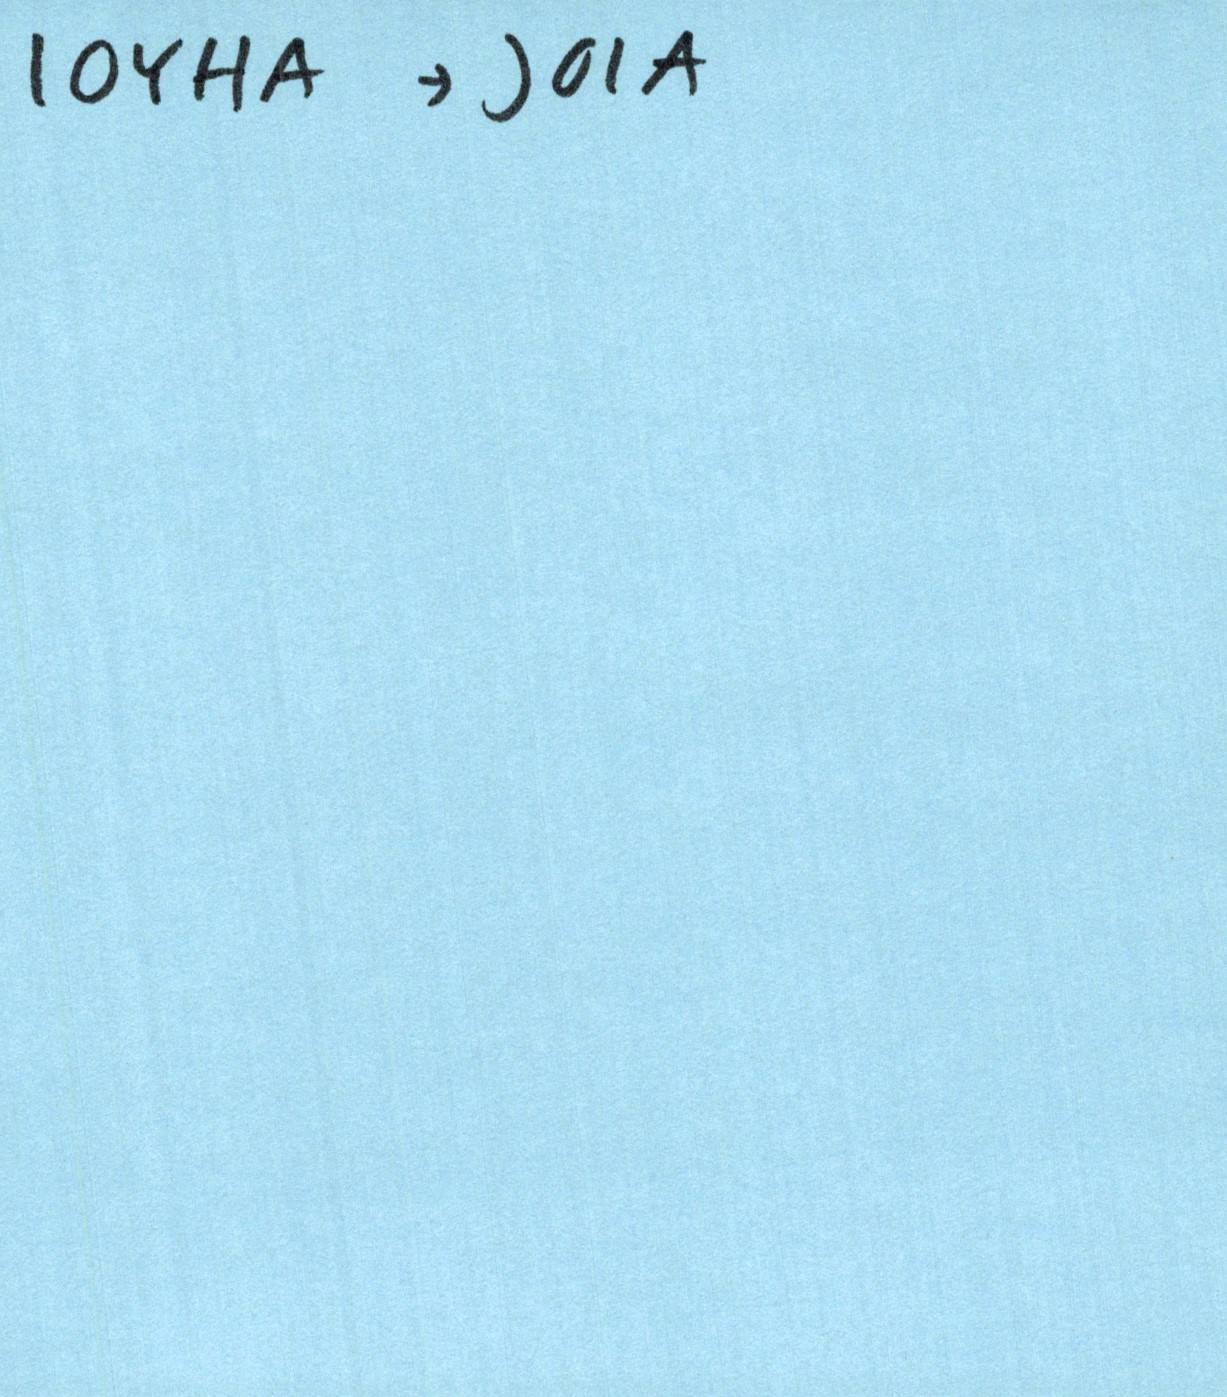 IOYHA → JOIA